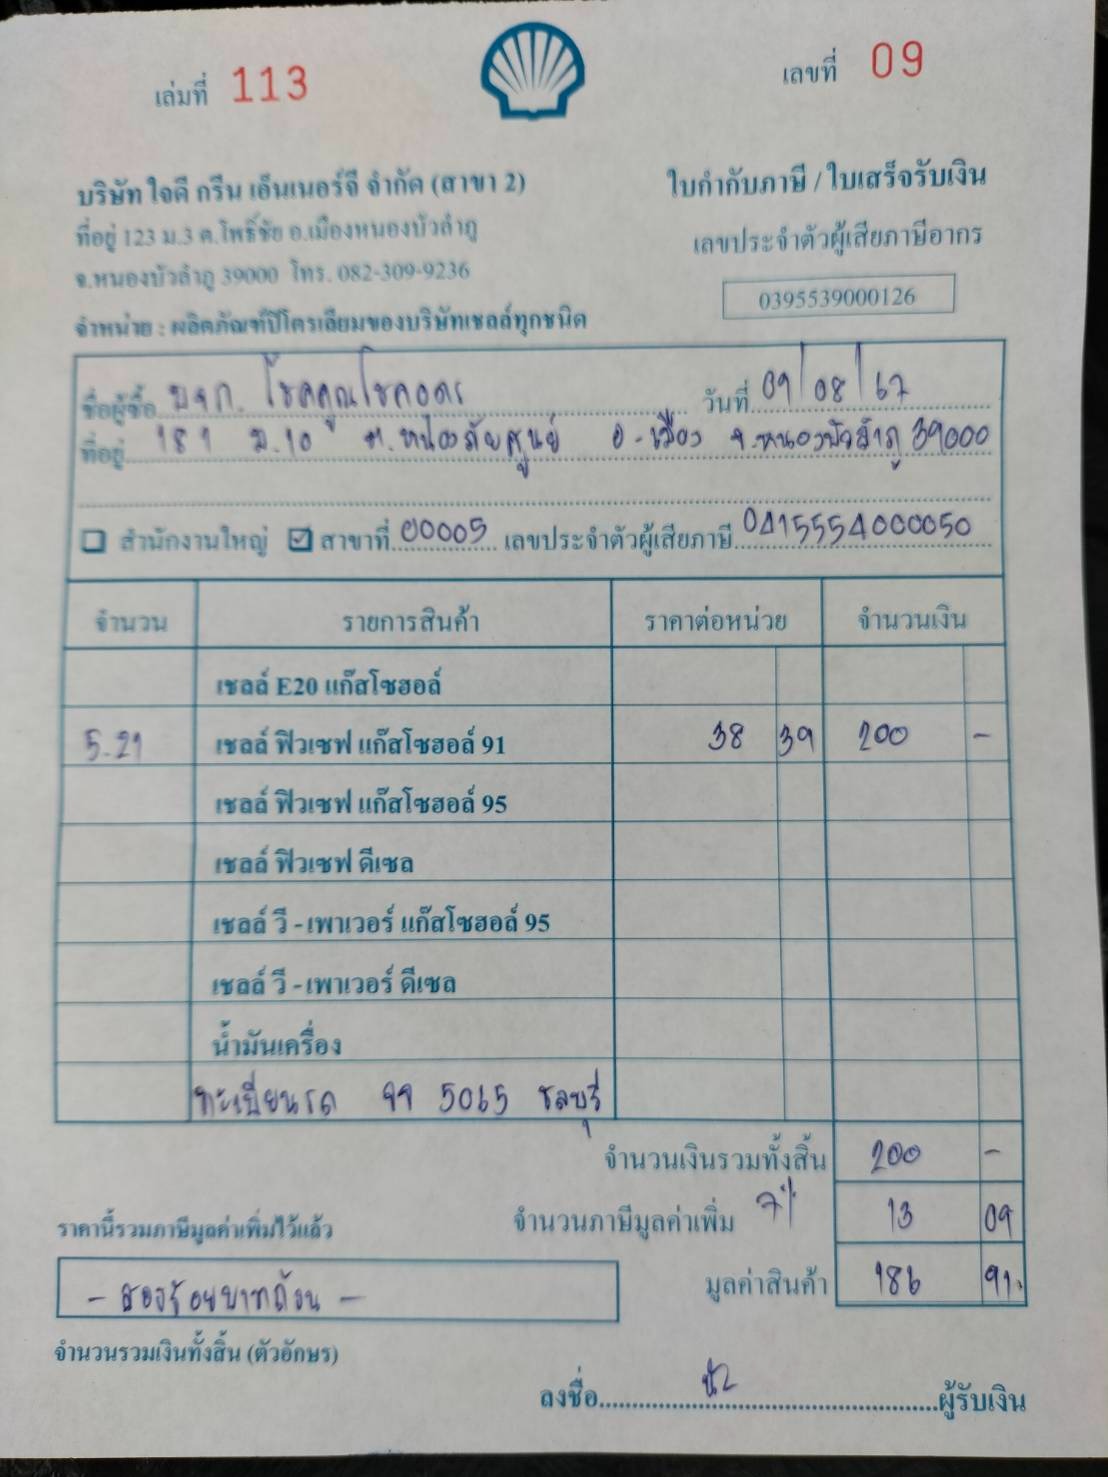 เล่มที่ 113
เลขที่ 09
บริษัท ใจดี กรีน เอ็นเนอร์จี จำกัด (สาขา 2)
ใบกำกับภาษี / ใบเสร็จรับเงิน
ที่อยู่ 123 ม.3 ต.โพธิ์ชัย อ.เมืองหนองบัวลำภู
เลขประจำตัวผู้เสียภาษีอากร
จ.หนองบัวลำภู 39000 โทร. 082-309-9236
0395539000126
จำหน่าย : ผลิตภัณฑ์ปิโตรเลียมของบริษัทเชลล์ทุกชนิด
ชื่อผู้ซื้อ บจก. โชคคูณโชคอดร วันที่ 09/08/67
ที่อยู่ 181 ม.10 ต.หนองภัยศูนย์ อ.เมือง จ.หนองบัวลำภู 39000
สำนักงานใหญ่ สาขาที่ 00005 เลขประจำตัวผู้เสียภาษี 0415554000050
จำนวน รายการสินค้า ราคาต่อหน่วย จำนวนเงิน
เชลล์ E20 แก๊สโซฮอล์
5.21 เชลล์ ฟิวเซฟ แก๊สโซฮอล์ 91 38 39 200 -
เชลล์ ฟิวเซฟ แก๊สโซฮอล์ 95
เชลล์ ฟิวเซฟ ดีเซล
เชลล์ วี - เพาเวอร์ แก๊สโซฮอล์ 95
เชลล์ วี - เพาเวอร์ ดีเซล
น้ำมันเครื่อง
ทะเบียนรถ 5065 ชลบุรี
จำนวนเงินรวมทั้งสิ้น 200 -
ราคานี้รวมภาษีมูลค่าเพิ่มไว้แล้ว จำนวนภาษีมูลค่าเพิ่ม 7% 13 09
- สองร้อยบาทถ้วน - มูลค่าสินค้า 186 91.
จำนวนรวมเงินทั้งสิ้น (ตัวอักษร)
ลงชื่อ ผู้รับเงิน